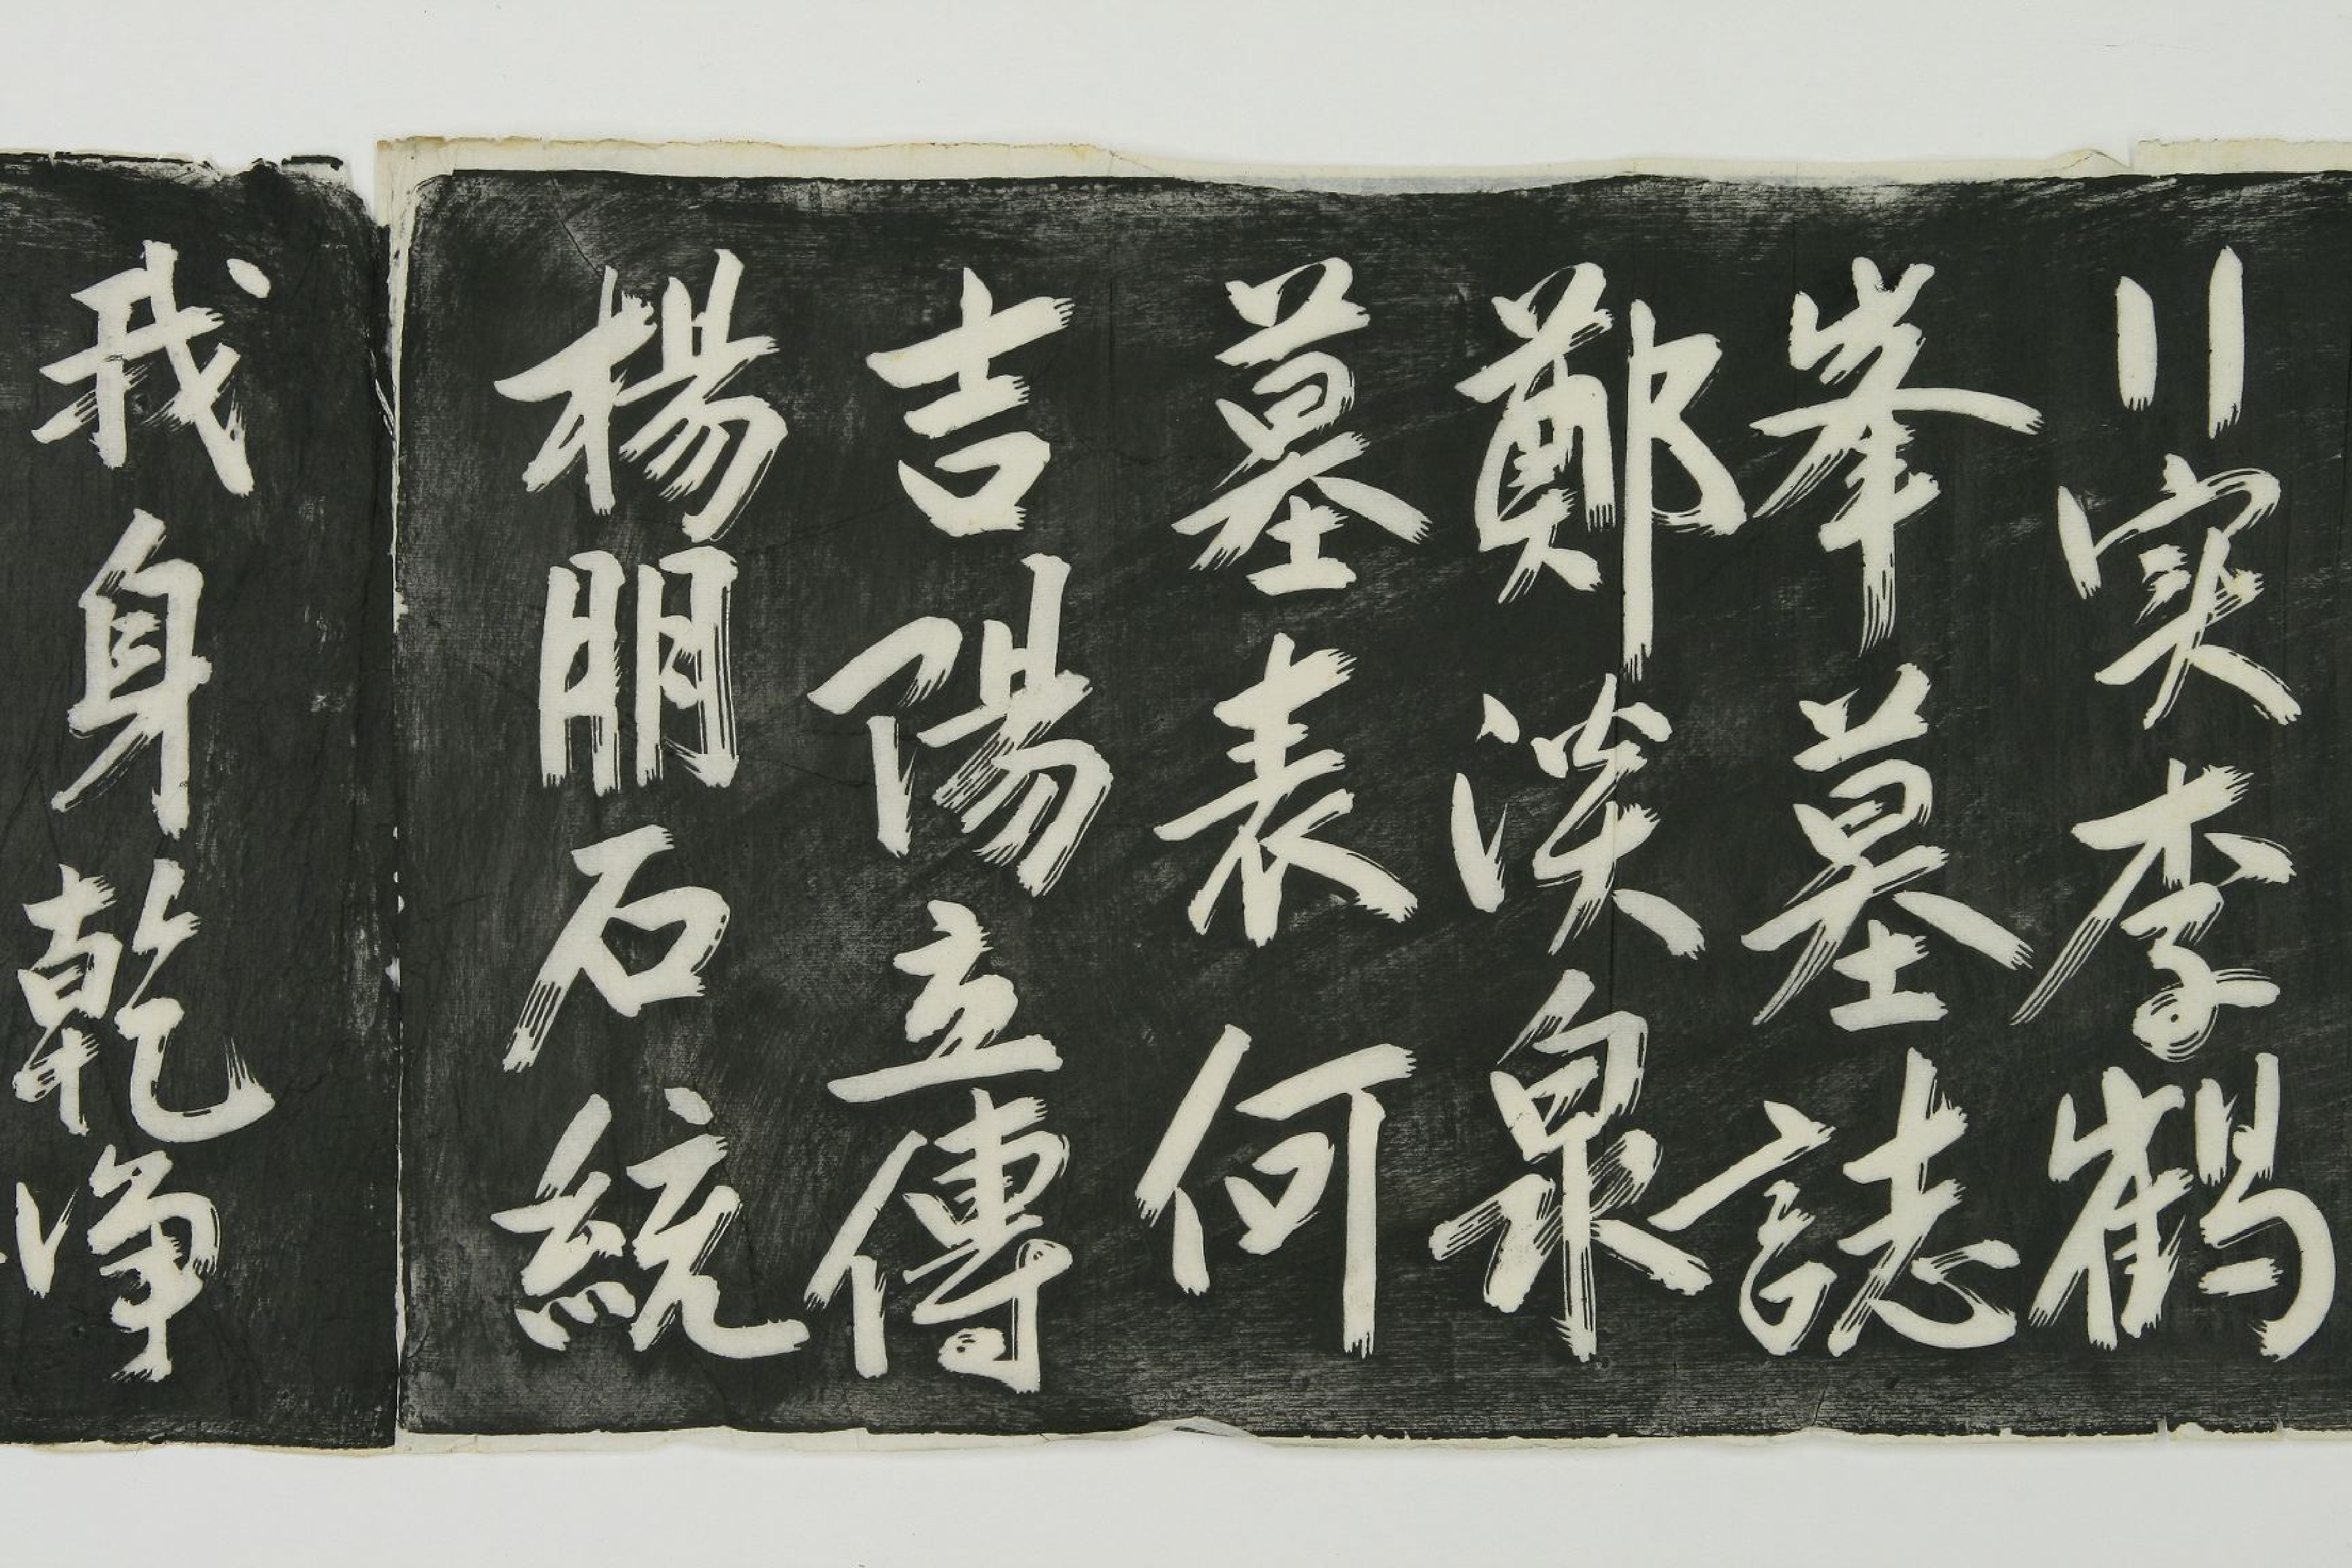 実李鶴
峯墓誌
鄭淡泉
墓表何
吉陽立傳
楊朋石統
我身乾净